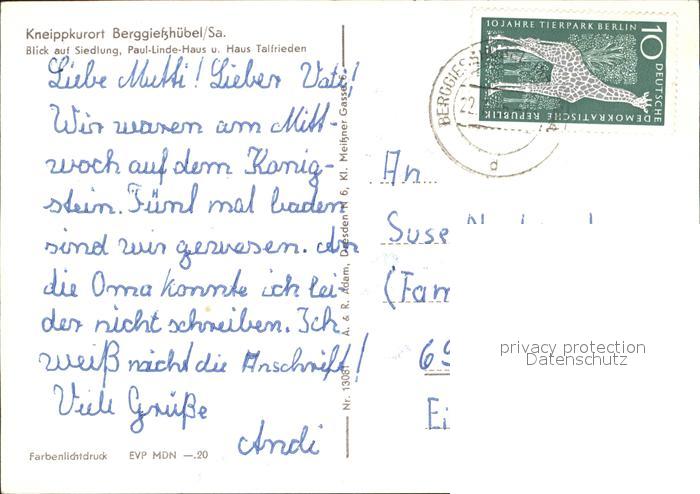 Kneippkurort Berggießhübel/Sa.
Blick auf Siedlung, Paul-Linde-Haus u. Haus Talfrieden
Liebe Mutti! Lieber Vati!
Wir waren am Mitt-
woch auf dem Königstein. Fünf mal baden
sind wir gewesen. An
die Oma konnte ich lei-
der nicht schreiben. Ich
weiß nicht die Anschrift!
Viele Grüße
Andi
Farbenlichtdruck EVP MDN —.20
Nr. 13081 A. & R. Adam, Dresden N 6, Kl. Meißner Gasse
10 JAHRE TIERPARK BERLIN
10 DEUTSCHE
DEMOKRATISCHE REPUBLIK
BERGGIES
22.
d
An
Suse
(Fam
69
Ei
privacy protection
Datenschutz